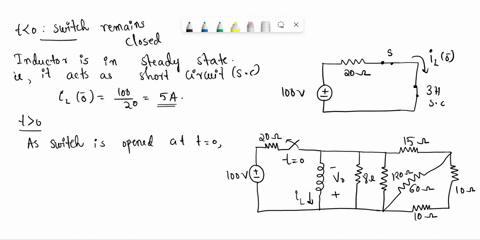 t<0 : switch remains
closed
Inductor is in steady state.
ie, it acts as short circuit (s.c)
iL(0⁻) = 100/20 = 5A.
t>0
As switch is opened at t=0,
S
iL(0⁻)
20Ω
100V
3H
s.c
20Ω
t=0
15Ω
100V
iL
-
V0
+
8Ω
120Ω
60Ω
10Ω
10Ω